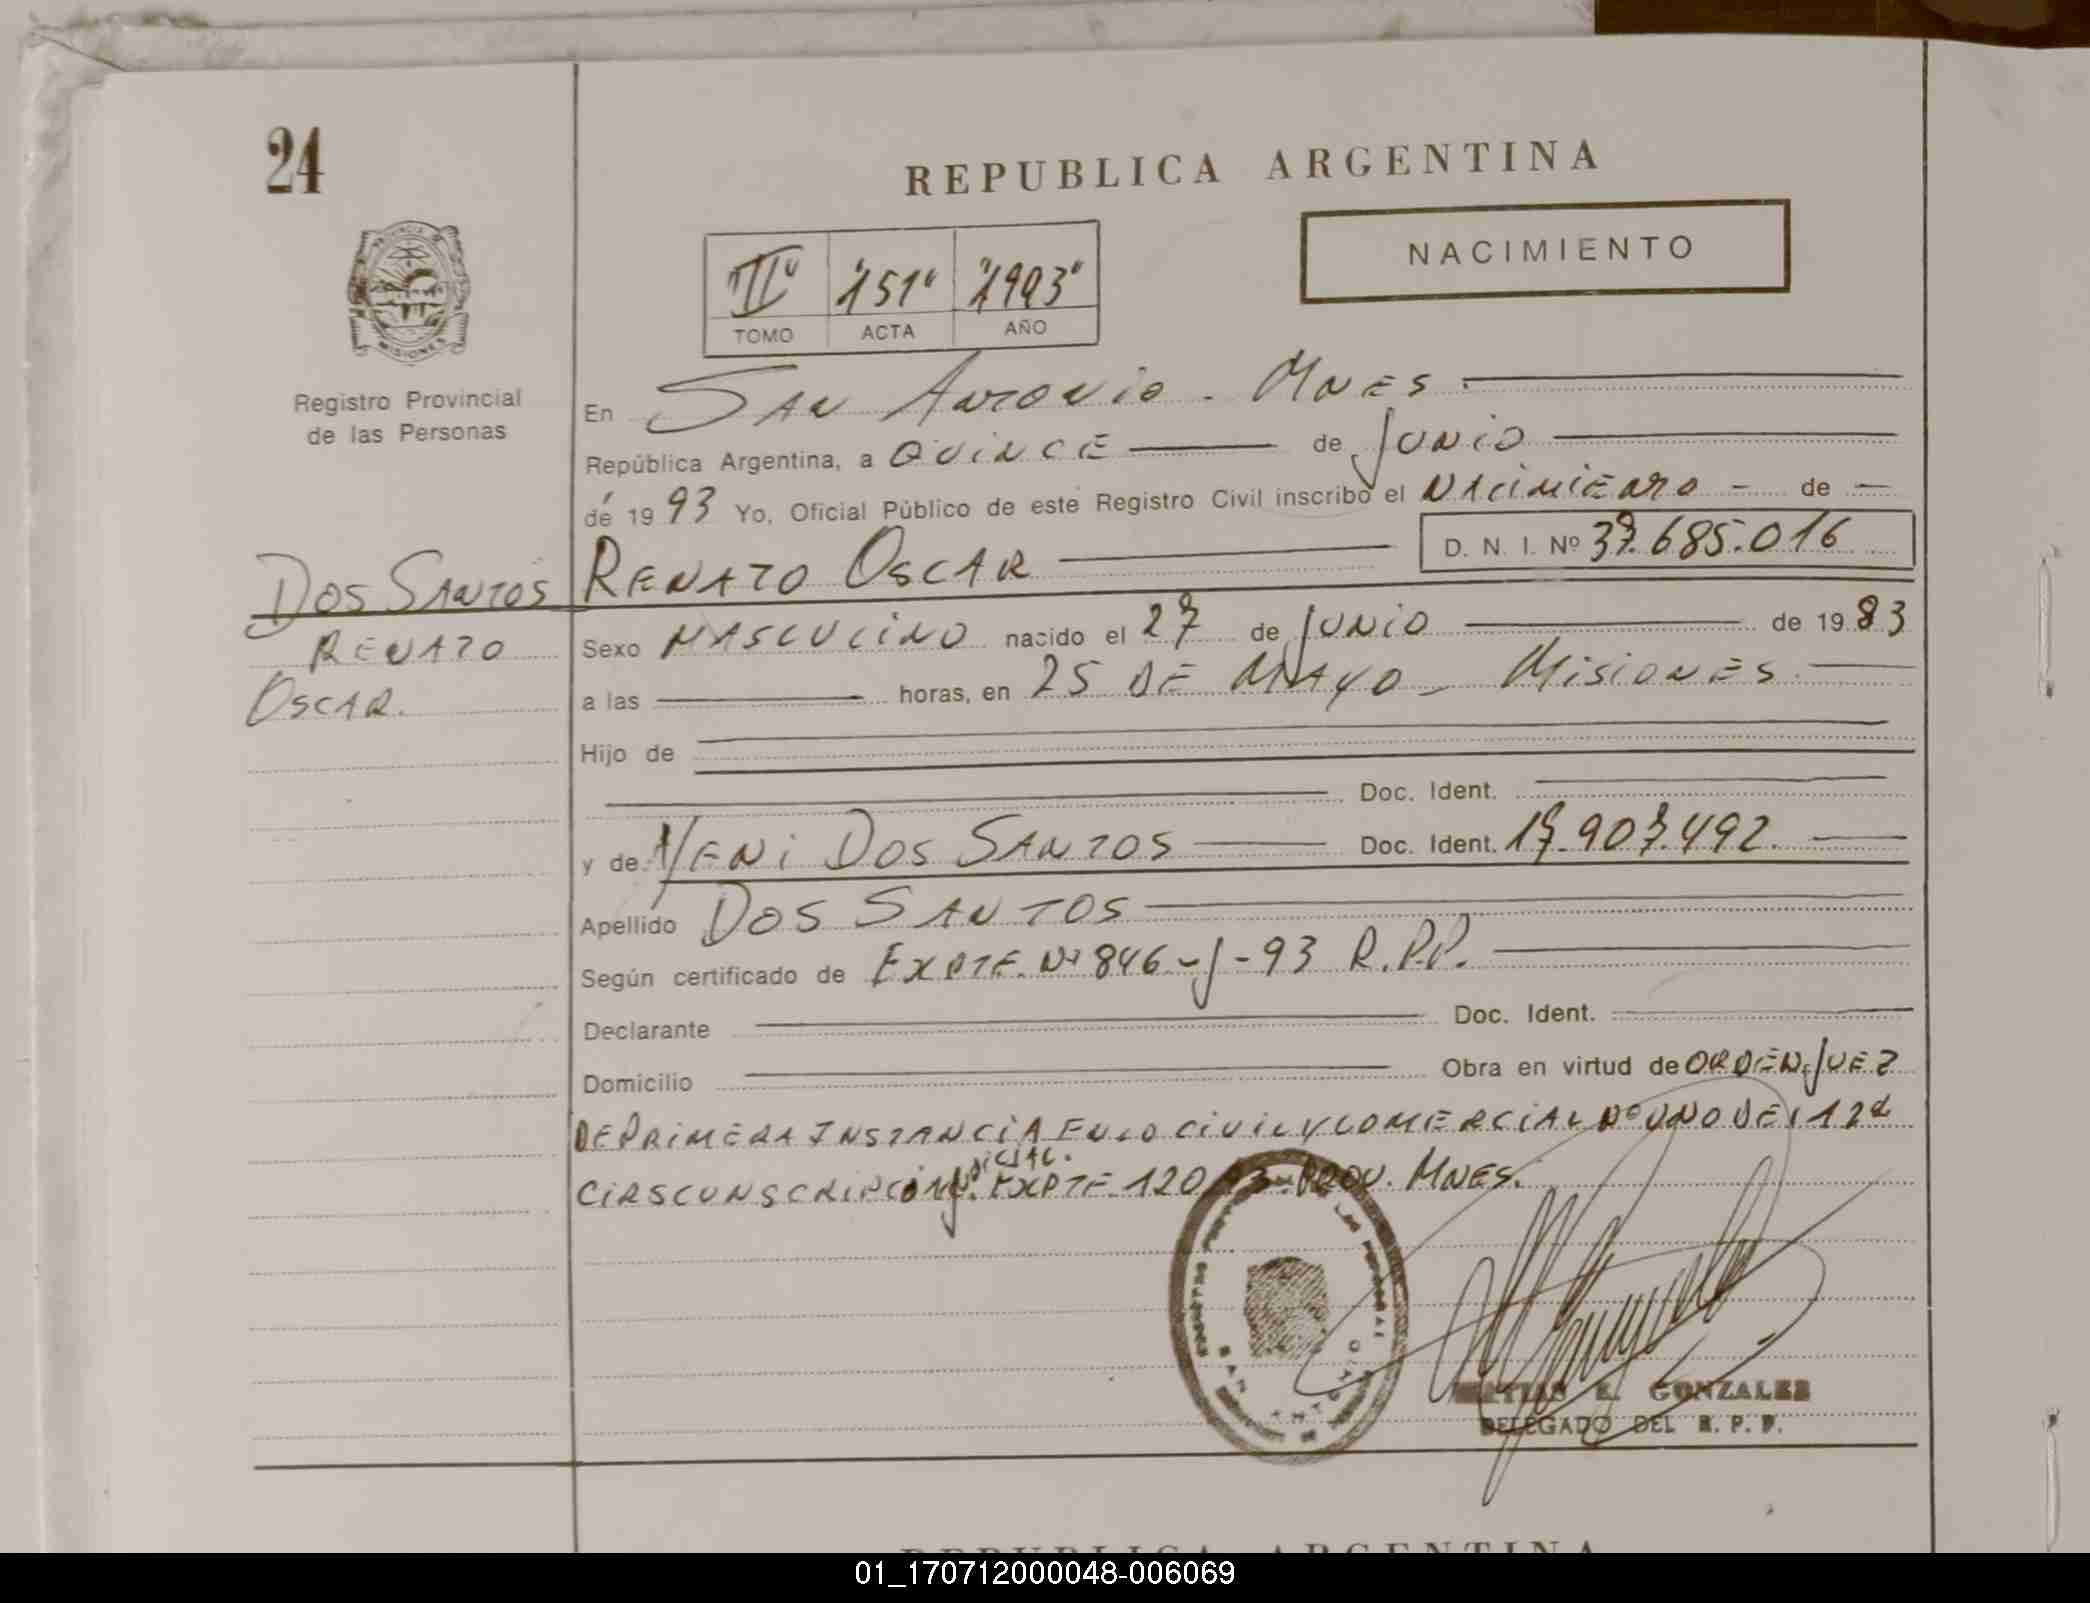 24
REPUBLICA ARGENTINA
NACIMIENTO
"II" "151" "1993"
TOMO ACTA AÑO
PROVINCIA DE MISIONES
Registro Provincial
de las Personas
En San Antonio - Mnes.
República Argentina, a QUINCE de JUNIO
de 19 93 Yo, Oficial Público de este Registro Civil inscribo el NACIMIENTO - de -
DOS SANTOS RENATO OSCAR D. N. I. Nº 37.685.016
RENATO
OSCAR.
Sexo MASCULINO nacido el 27 de JUNIO de 19 83
a las horas, en 25 DE MAYO - MISIONES.
Hijo de
Doc. Ident.
y de YENI DOS SANTOS Doc. Ident. 17.907.492.
Apellido DOS SANTOS
Según certificado de EXPTE. Nº 846-J-93 R.P.P.
Declarante Doc. Ident.
Domicilio Obra en virtud de ORDEN JUEZ
DE PRIMERA INSTANCIA EN LO CIVIL Y COMERCIAL Nº UNO DE
CIRSCUNSCRIPCION JUDICIAL. EXPTE 120 PROV. MNES.
SAN ANTONIO
E. GONZALES
DELEGADO DEL R. P. P.
REPUBLICA ARGENTINA
01_170712000048-006069